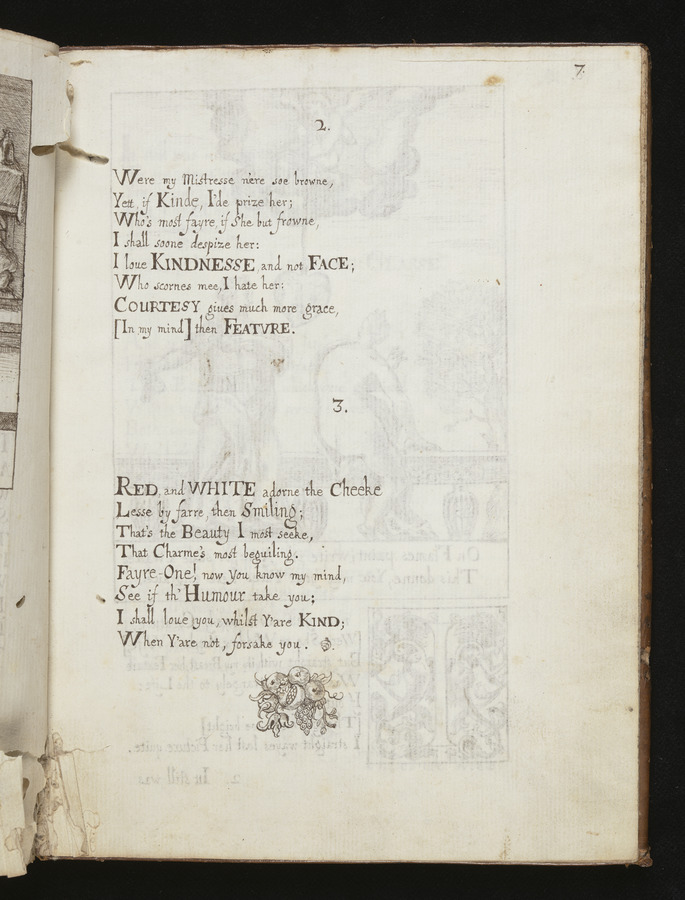 7.
2.
Were my Mistresse ne're soe browne,
Yett, if Kinde, I'de prize her;
Who's most fayre, if She but frowne,
I shall soone despize her:
I loue KINDNESSE, and not FACE;
Who scornes mee, I hate her:
COURTESY giues much more grace,
[In my mind] then FEATVRE.
3.
RED, and WHITE adorne the Cheeke
Lesse by farre, then Smiling;
That's the Beauty I most seeke,
That Charme's most beguiling.
Fayre-One! now you know my mind,
See if th' Humour take you;
I shall loue you, whilst Y'are KIND;
When Y'are not, forsake you.